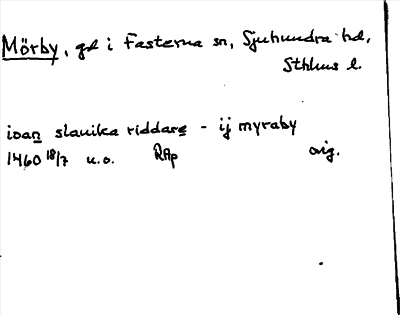 Mörby, gd i Fasterna sn, Sjuhundra hd,
Sthlms l.
ioan slauika riddare - ij myraby
1460 18/7 u.o. RAp orig.